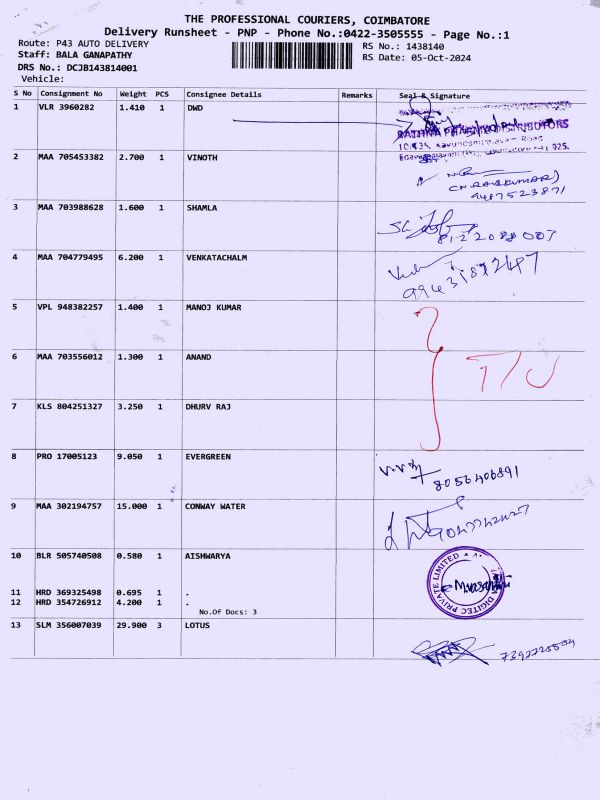 THE PROFESSIONAL COURIERS, COIMBATORE
Delivery Runsheet - PNP - Phone No.:0422-3505555 - Page No.:1
Route: P43 AUTO DELIVERY
RS No.: 1438140
Staff: BALA GANAPATHY
RS Date: 05-Oct-2024
DRS No.: DCJB143814001
Vehicle:
S No Consignment No Weight PCS Consignee Details Remarks Seal & Signature
1 VLR 3960282 1.410 1 DWD
2 MAA 705453382 2.700 1 VINOTH
9487523871
3 MAA 703988628 1.600 1 SHAMLA
4 MAA 704779495 6.200 1 VENKATACHALM
5 VPL 948382257 1.400 1 MANOJ KUMAR
6 MAA 703556012 1.300 1 ANAND
7 KLS 804251327 3.250 1 DHURV RAJ
8 PRO 17005123 9.050 1 EVERGREEN
8056406891
9 MAA 302194757 15.000 1 CONWAY WATER
10 BLR 505740508 0.580 1 AISHWARYA
DIGITEC PRIVATE LIMITED
11 HRD 369325498 0.695 1 .
12 HRD 354726912 4.200 1 .
No.Of Docs: 3
13 SLM 356007039 29.900 3 LOTUS